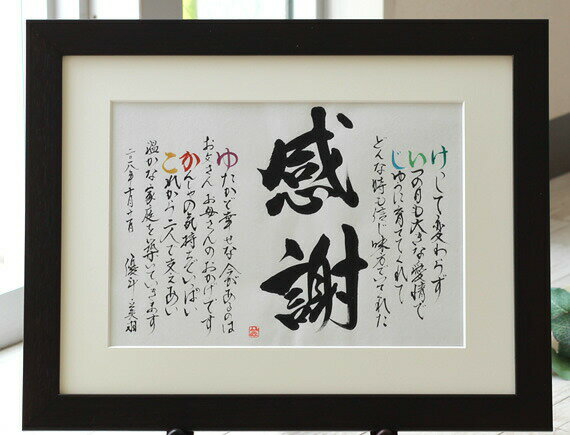 けっして変わらず
いつの日も大きな愛情で
じゆうに育ててくれて
どんな時も信じ味方でいてくれた
感謝
ゆたかで幸せな今があるのは
お父さんお母さんのおかげです
かんしゃの気持ちでいっぱい
これから二人で支えあい
温かな家庭を築いていきます
二〇一八年十月十一日 優斗 美羽